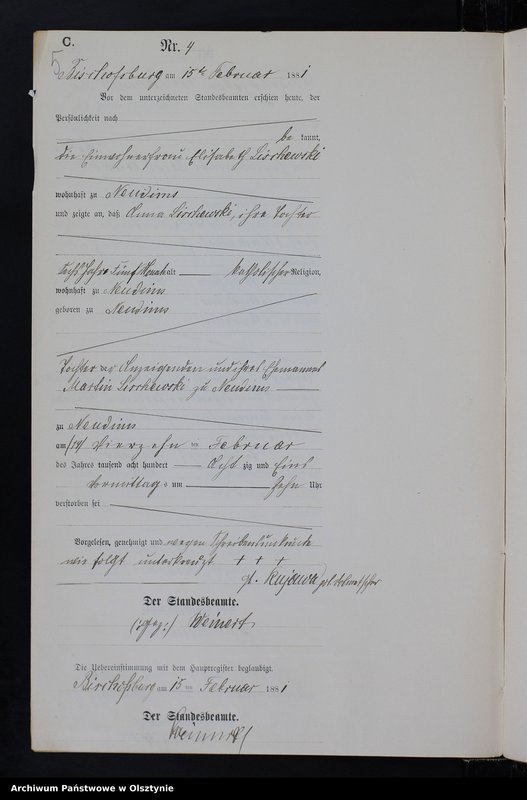 C.
Nr. 4
5
Bischofsburg am 15ten Februar 1881
Vor dem unterzeichneten Standesbeamten erschien heute, der
Persönlichkeit nach
be kannt,
die Einwohnerfrau Elisabeth Lischewski
wohnhaft zu Neudims
und zeigte an, daß Anna Lischewski, ihre Tochter
sechs Jahr fünf Monat alt katholischer Religion,
wohnhaft zu Neudims
geboren zu Neudims
Tochter der Anzeigenden und ihres Ehemannes
Martin Lischewski zu Neudims
zu Neudims
am (14) vierzehn ten Februar
des Jahres tausend acht hundert Acht zig und Eins
Vormittags um zehn Uhr
verstorben sei
Vorgelesen, genehmigt und wegen Schreibensunkunde
wie folgt unterkreuzt + + +
Kujawa
Der Standesbeamte.
(gez:) Weinert
Die Uebereinstimmung mit dem Hauptregister beglaubigt.
Bischofsburg am 15 ten Februar 1881
Der Standesbeamte.
Weinert
Archiwum Państwowe w Olsztynie